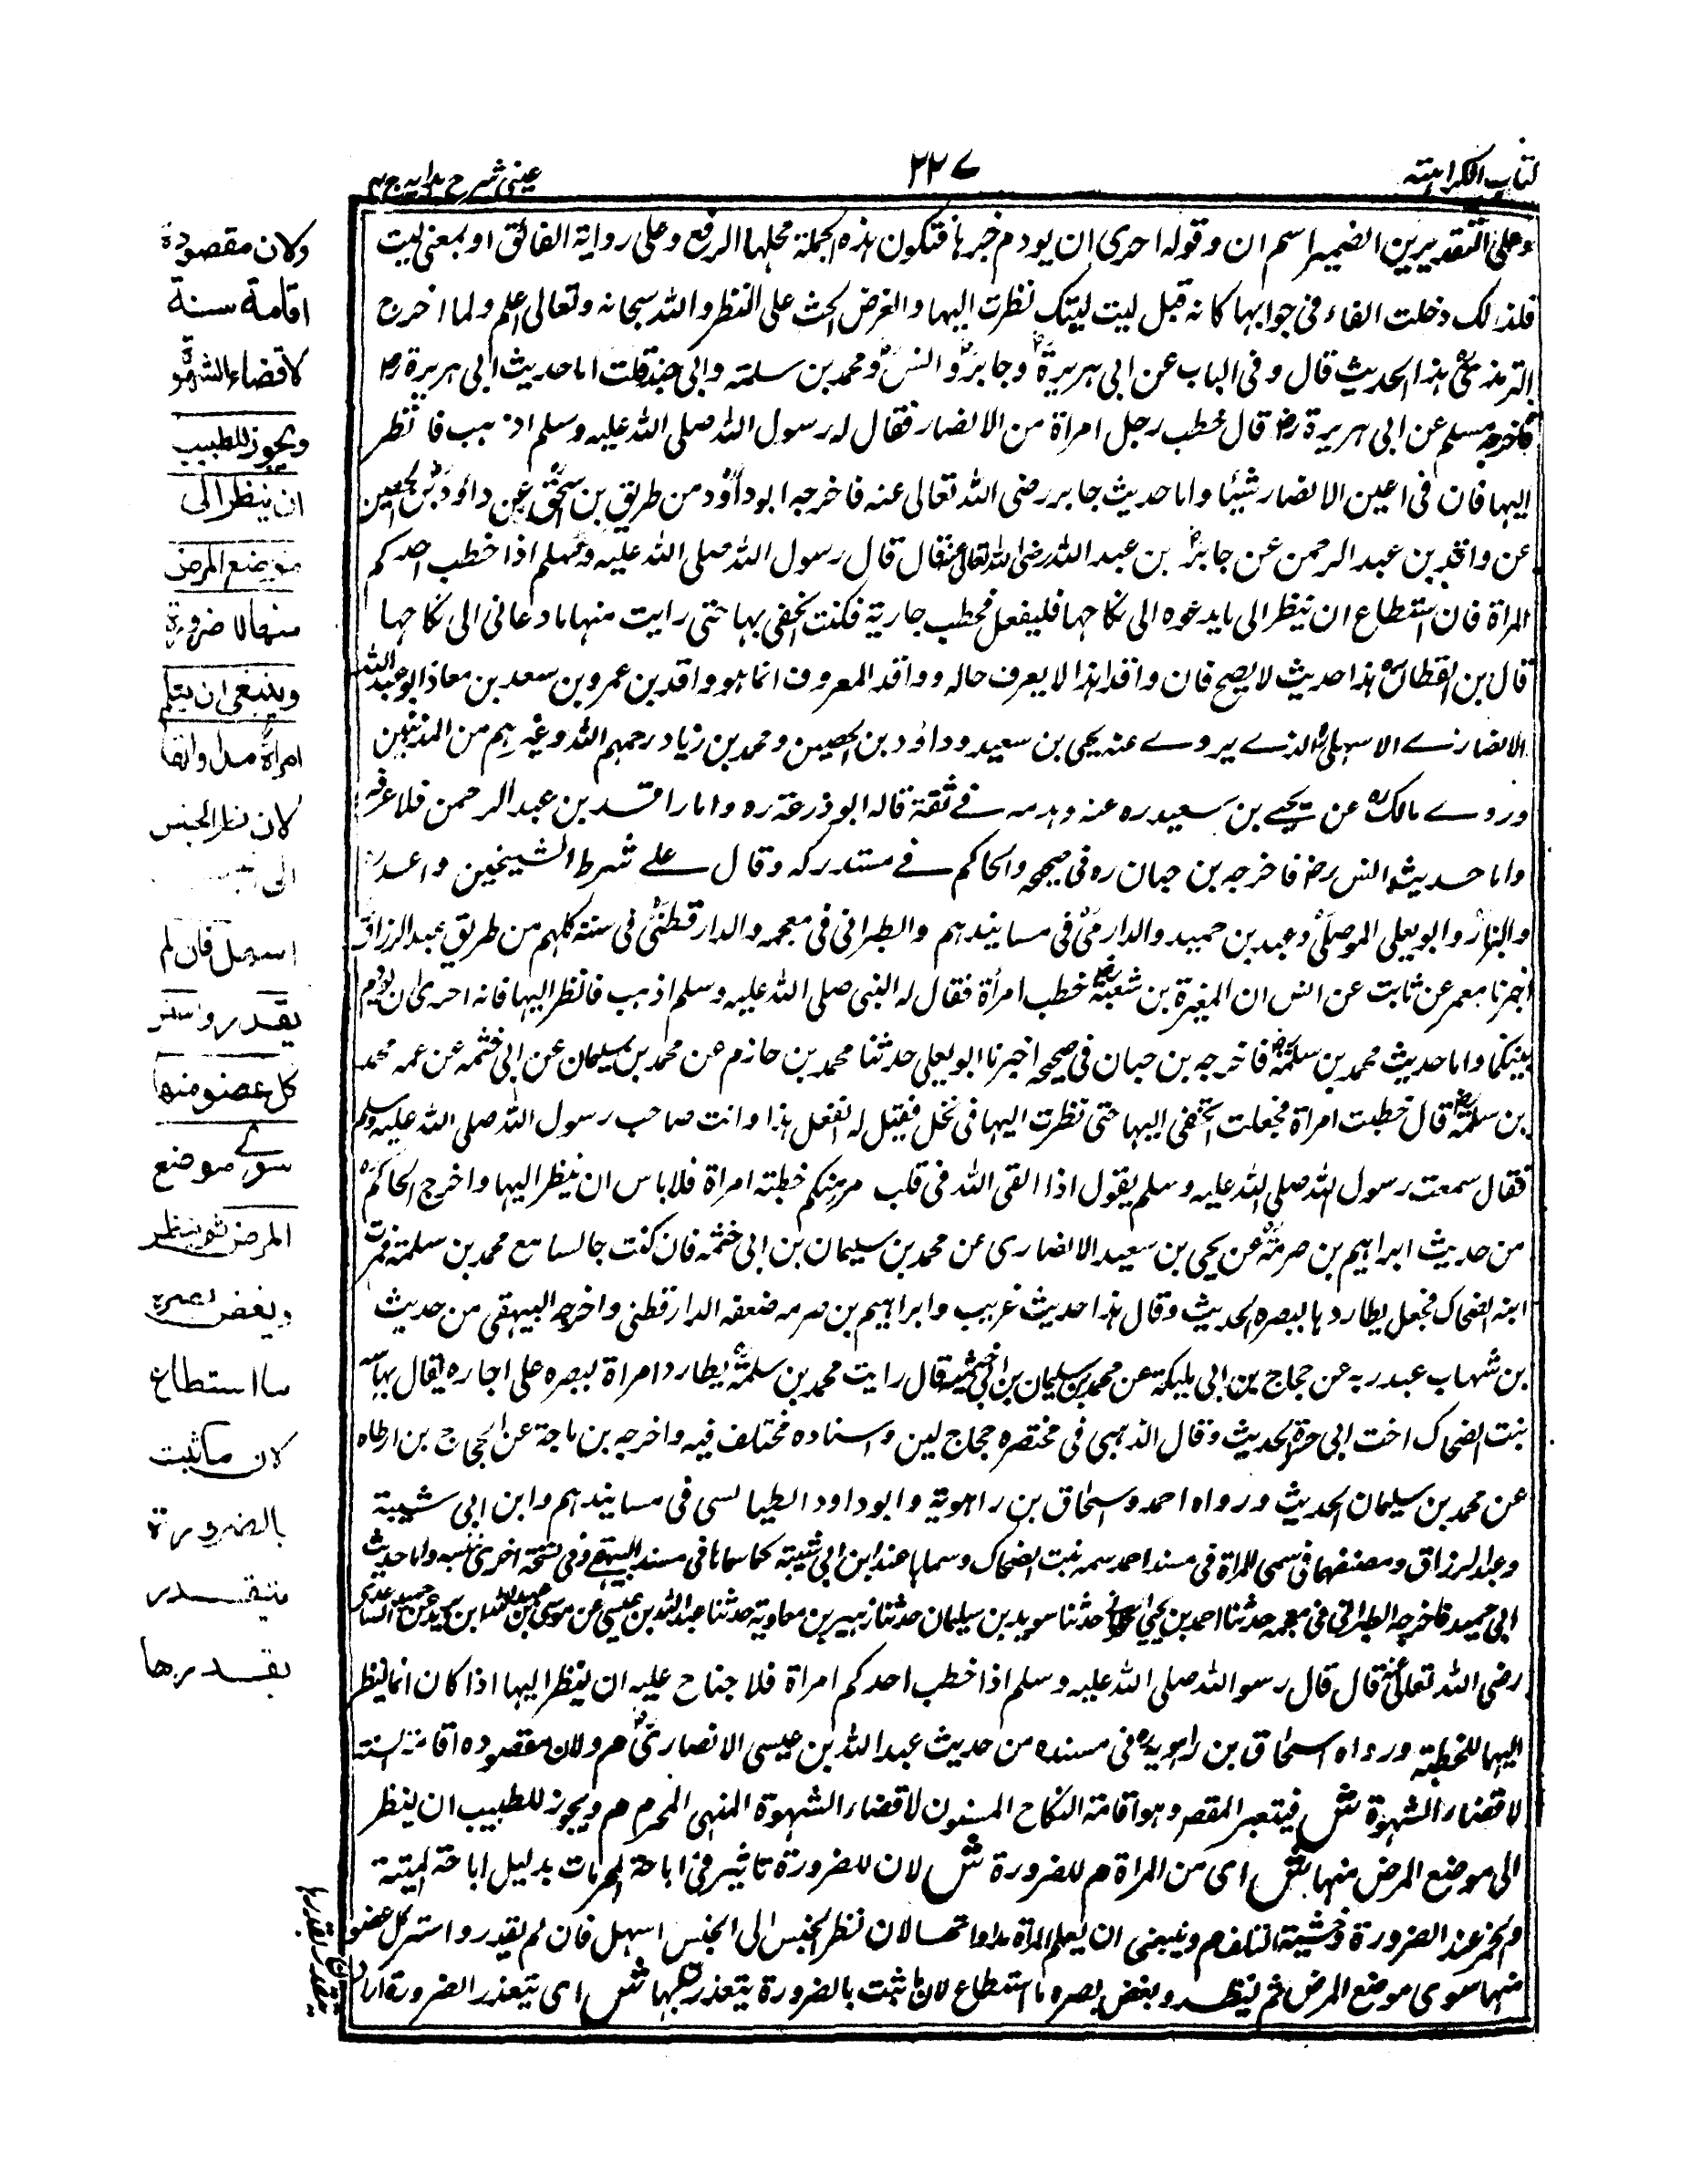 كتاب الكراهية
٢٢٧
عينى شرح هدايه ج ٤
وعلى التقديرين الضمير اسم ان وقوله احرى ان يودم خبرها فتكون هذه الجملة محلها الرفع وعلى رواية الفائق او بمعنى ليت
فلذلك دخلت الفاء فى جوابها كانه قيل ليت ليتك نظرت اليها والغرض الحث على النظر والله سبحانه وتعالى اعلم ولما اخرج
الترمذى هذا الحديث قال وفى الباب عن ابى هريرة وجابر وانس ومحمد بن سلمة وابى حميد قلت اما حديث ابى هريرة رض
فاخرجه مسلم عن ابى هريرة رض قال خطب رجل امراة من الانصار فقال له رسول الله صلى الله عليه وسلم اذهب فانظر
اليها فان فى اعين الانصار شيئا واما حديث جابر رضى الله تعالى عنه فاخرجه ابو داؤد من طريق بن اسحق عن داؤد بن الحصين
عن واقد بن عبد الرحمن عن جابر بن عبد الله رضى الله تعالى عنه قال قال رسول الله صلى الله عليه وسلم اذا خطب احدكم
المراة فان استطاع ان ينظر الى ما يدعوه الى نكاحها فليفعل فخطب جارية فكنت اتخفى بها حتى رايت منها ما دعانى الى نكاحها
قال بن القطان هذا حديث لا يصح فان واقدا هذا لا يعرف حاله وواقد المعروف انما هو واقد بن عمرو بن سعد بن معاذ ابو عبد الله
الانصارے الاشهلى الذے يروے عنه يحيى بن سعيد وداؤد بن الحصين ومحمد بن زياد رحمهم الله وغيرهم من المدنيين
وروے مالك عن يحيے بن سعيد ره عنه وهو مدنے ثقة قاله ابو ذرعة ره واما واقد بن عبد الرحمن فلا اعرفه
واما حديث انس رض فاخرجه بن حبان ره فى صحيحه والحاكم فے مستدركه وقال علے شرط الشيخين واحمد
والبزار وابو يعلى الموصلى وعبد بن حميد والدارمى فى مسانيدهم والطبرانى فى معجمه والدارقطنى فى سننه كلهم من طريق عبد الرزاق
اخبرنا معمر عن ثابت عن انس ان المغيرة بن شعبة خطب امرأة فقال له النبى صلى الله عليه وسلم اذهب فانظر اليها فانه احرى ان يودم
بينكما واما حديث محمد بن سلمة فاخرجه بن حبان فى صحيحه اخبرنا ابو يعلى حدثنا محمد بن حازم عن محمد بن سليمان عن ابى خثمه عن عمه محمد
بن سلمة قال خطبت امراة فجعلت اتخفى اليها حتى نظرت اليها فى نخل فقيل له اتفعل هذا وانت صاحب رسول الله صلى الله عليه وسلم
فقال سمعت رسول الله صلى الله عليه وسلم يقول اذا القى الله فى قلب منكم خطبة امراة فلا باس ان ينظر اليها واخرج الحاكم
من حديث ابراهيم بن صرمة عن يحيى بن سعيد الانصارى عن محمد بن سليمان بن ابى خثمه فان كنت جالسا مع محمد بن سلمة فمرت
ابنة الضحاك فجعل يطاردها ببصره الحديث وقال هذا حديث غريب وابراهيم بن صرمه ضعفه الدارقطنى واخرجه البيهقى من حديث
بن شهاب عبد ربه عن حجاج بن ابى مليكة عن محمد بن سليمان بن ابى خثمة قال رايت محمد بن سلمة يطارد امراة ببصره على اجاره يقال لها
بنت الضحاك اخت ابى الحديث وقال الذهبى فى مختصره حجاج لين واسناده مختلف فيه واخرجه بن ماجة عن الحجاج بن ارطاه
عن محمد بن سليمان الحديث ورواه احمد واسحاق بن راهوية وابو داود الطيالسى فى مسانيدهم وابن ابى شيبة
وعبد الرزاق ومصنفهما فى سمى المراة فى مسند احمد بنت الضحاك وسماها عند ابن ابى شيبة كما سماها فى مسند البيهقے وفى نسخة اخرى واما حديث
ابى حميد فاخرجه الطبرانى فى معجمه حدثنا احمد بن يحيى حدثنا سويد بن سليمان حدثنا زهير بن معاوية حدثنا عبد الله بن عيسى عن موسى بن عبد الله ابن يزيد عن ابى حميد الساعدى
رضى الله تعالى عنه قال قال رسول الله صلى الله عليه وسلم اذا خطب احدكم امراة فلا جناح عليه ان ينظر اليها اذا كان انما ينظر
اليها للخطبة ورواه اسحاق بن راهويه فى مسنده من حديث عبد الله بن عيسى الانصارى م ولان مقصوده اقامة السنة
لا قضاء الشهوة ش فيعتبر المقصود وهو اقامة النكاح المسنون لا قضاء الشهوة المنهى المحرم م ويجوز للطبيب ان ينظر
الى موضع المرض منها ش اى من المراة م للضرورة ش لان للضرورة تاثير فى اباحة المحرمات بدليل اباحة الميتة
والخمر عند الضرورة وخشية التلف م وينبغى ان يعلم المراة مداواتها لان نظر الجنس الى الجنس اسهل فان لم يقدروا ستر كل عضو
منها سوى موضع المرض ثم ينظر ويغض بصره ما استطاع لان ما ثبت بالضرورة يتعذر بقدرها ش اى يتعذر الضرورة
ولان مقصودة
اقامة سنة
لا قضاء الشهوة
ويجوز للطبيب
ان ينظر الى
موضع المرض
منها للضرورة
وينبغى ان يعلم
امراة مداواتها
لان نظر الجنس
الى
اسهل فان لم
يقدروا ستر
كل عضو منها
سوے موضع
المرض ثم ينظر
ويغض بصره
ما استطاع
لان ما ثبت
بالضرورة
يتقدر
بقدرها